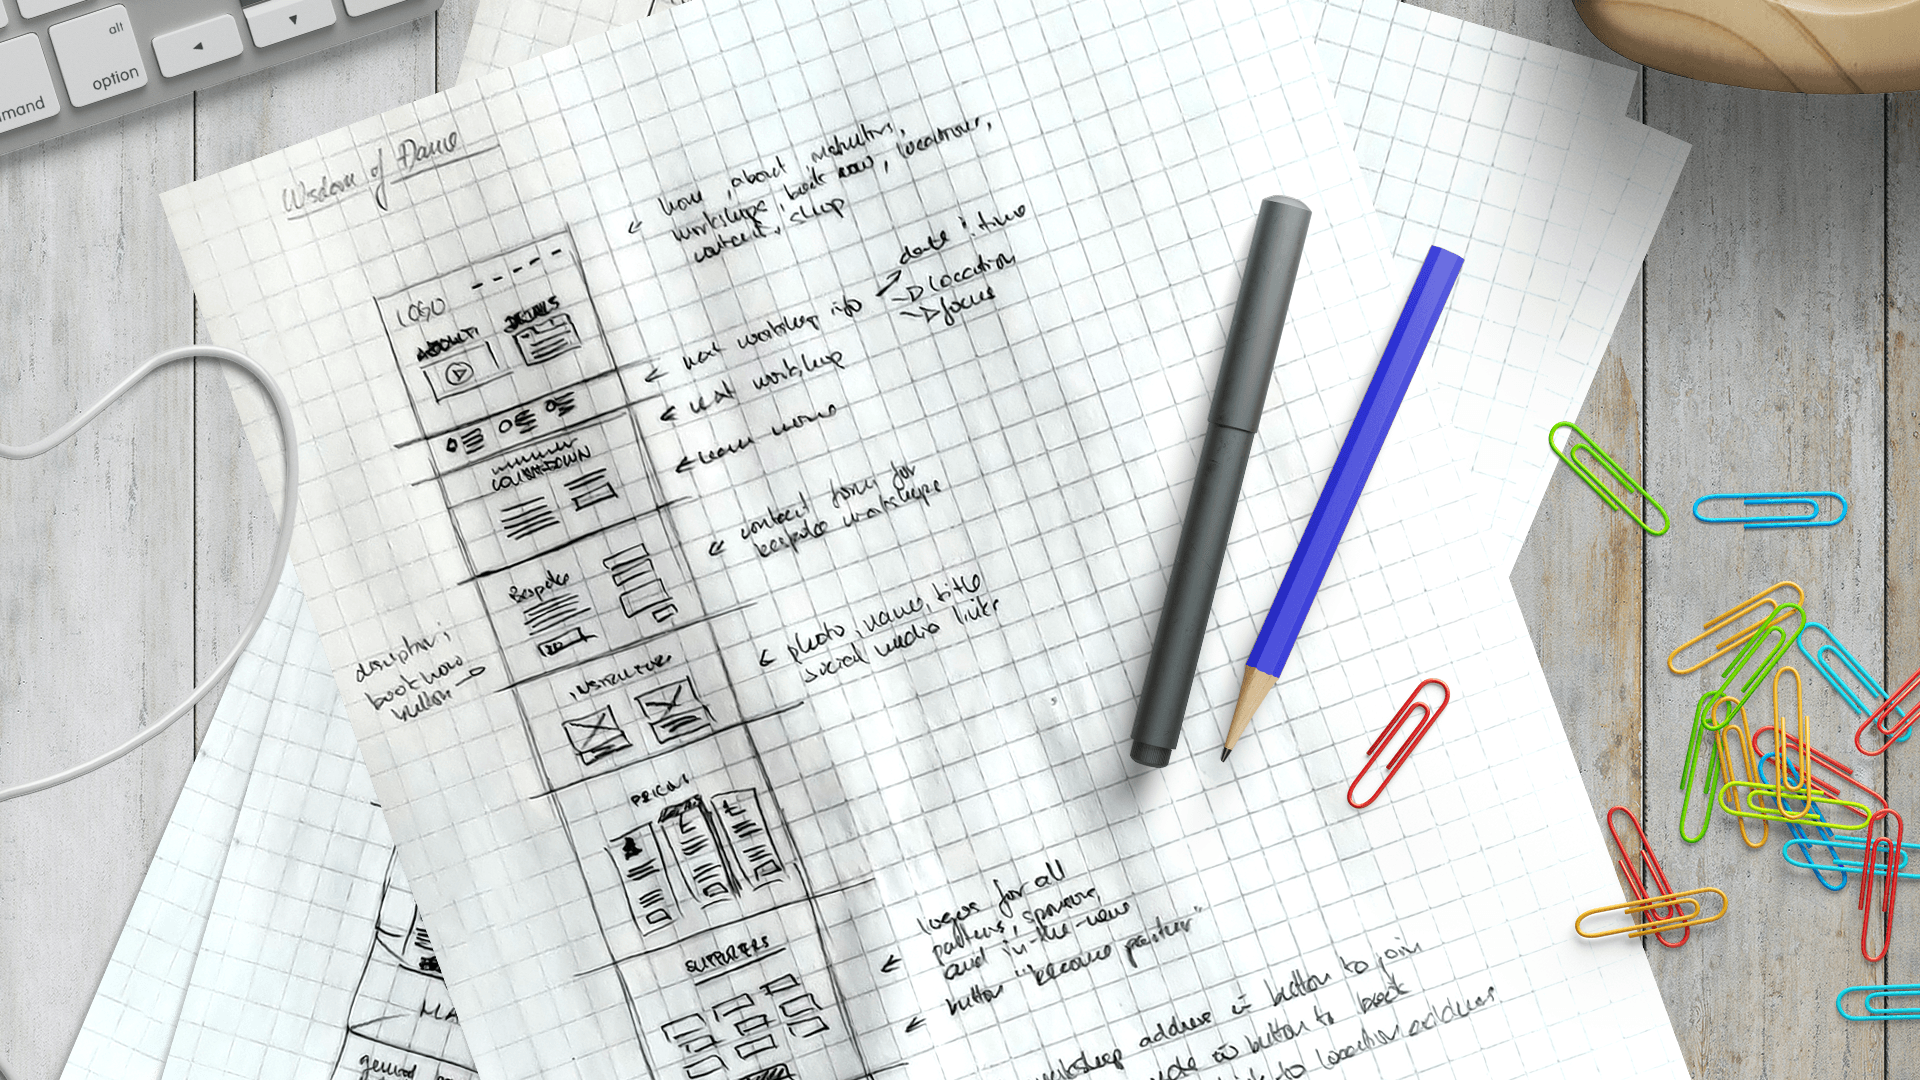 alt
option
mand
Wisdom of Dance
home, about, instructors,
workshops, book now, locations,
contact, shop
date & time
location
focus
next workshop info
next workshop
learn more
contact form for
bespoke workshops
photo, name, title
social media links
description;
book now
button
LOGO
ABOUT
DETAILS
COUNTDOWN
Bespoke
INSTRUCTORS
PRICING
SUPPORTERS
logos for all
partners, sponsors,
and in-the-news
button "become partner"
workshop address button to join
button to book
to location address
MA
general